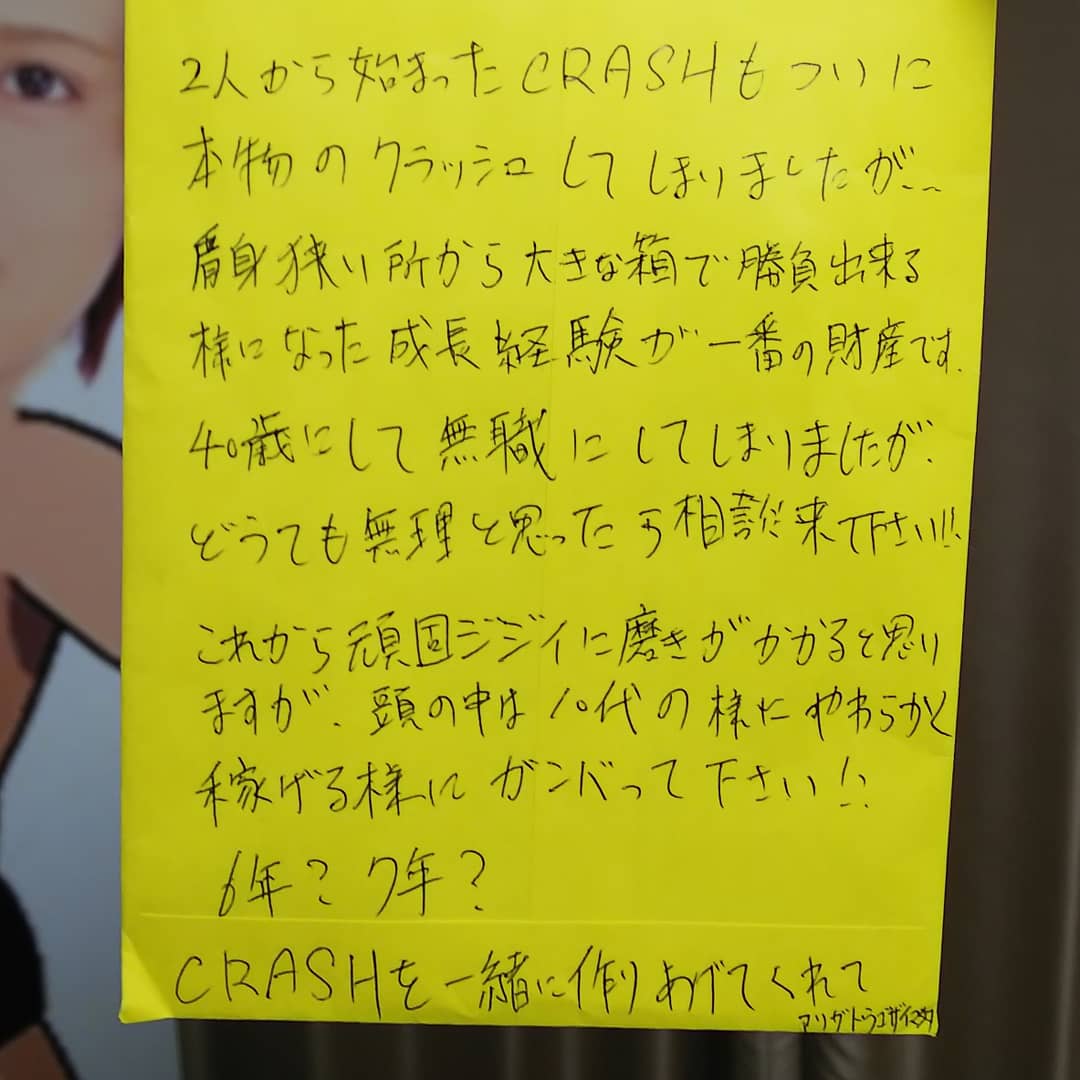 2人から始まったCRASHもついに
本物のクラッシュしてしまいましたが、、
肩身狭い所から大きな箱で勝負出来る
様になった成長経験が一番の財産です.
40歳にして無職にしてしまいましたが、
どうても無理と思ったら相談来て下さい!!
これから頑固ジジイに磨きがかかると思い
ますが、頭の中は10代の様にやわらかく
稼げる様にガンバって下さい!!
6年?7年?
CRASHを一緒に作りあげてくれて
アリガトウゴザイマス